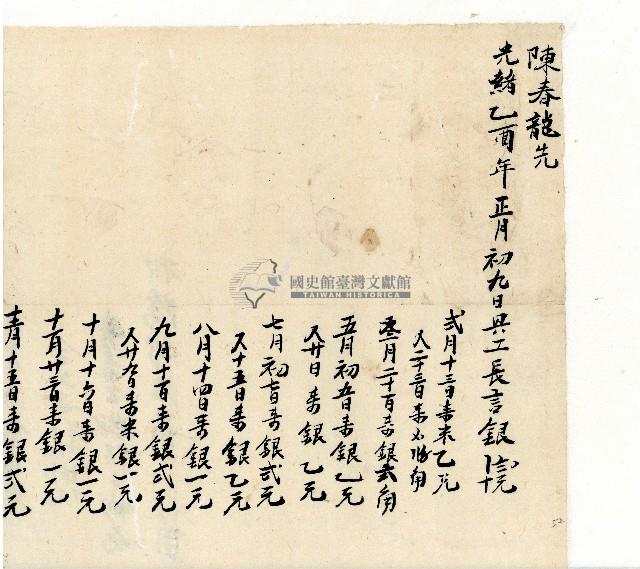 陳春龍先
光緒乙酉年正月初九日興工長言銀
弍月十三日來米乙元
又二十三日來角
叁月二十日來銀弍角
五月初五日來銀乙元
又廿日來銀乙元
七月初七日來銀弍元
又十五日來銀乙元
八月十四日來銀一元
九月十一日來銀弍元
又廿九日來米銀一元
十月十六日來銀一元
十一月廿三日來銀一元
十二月十五日來銀弍元
國史館臺灣文獻館
TAIWAN HISTORICA
52